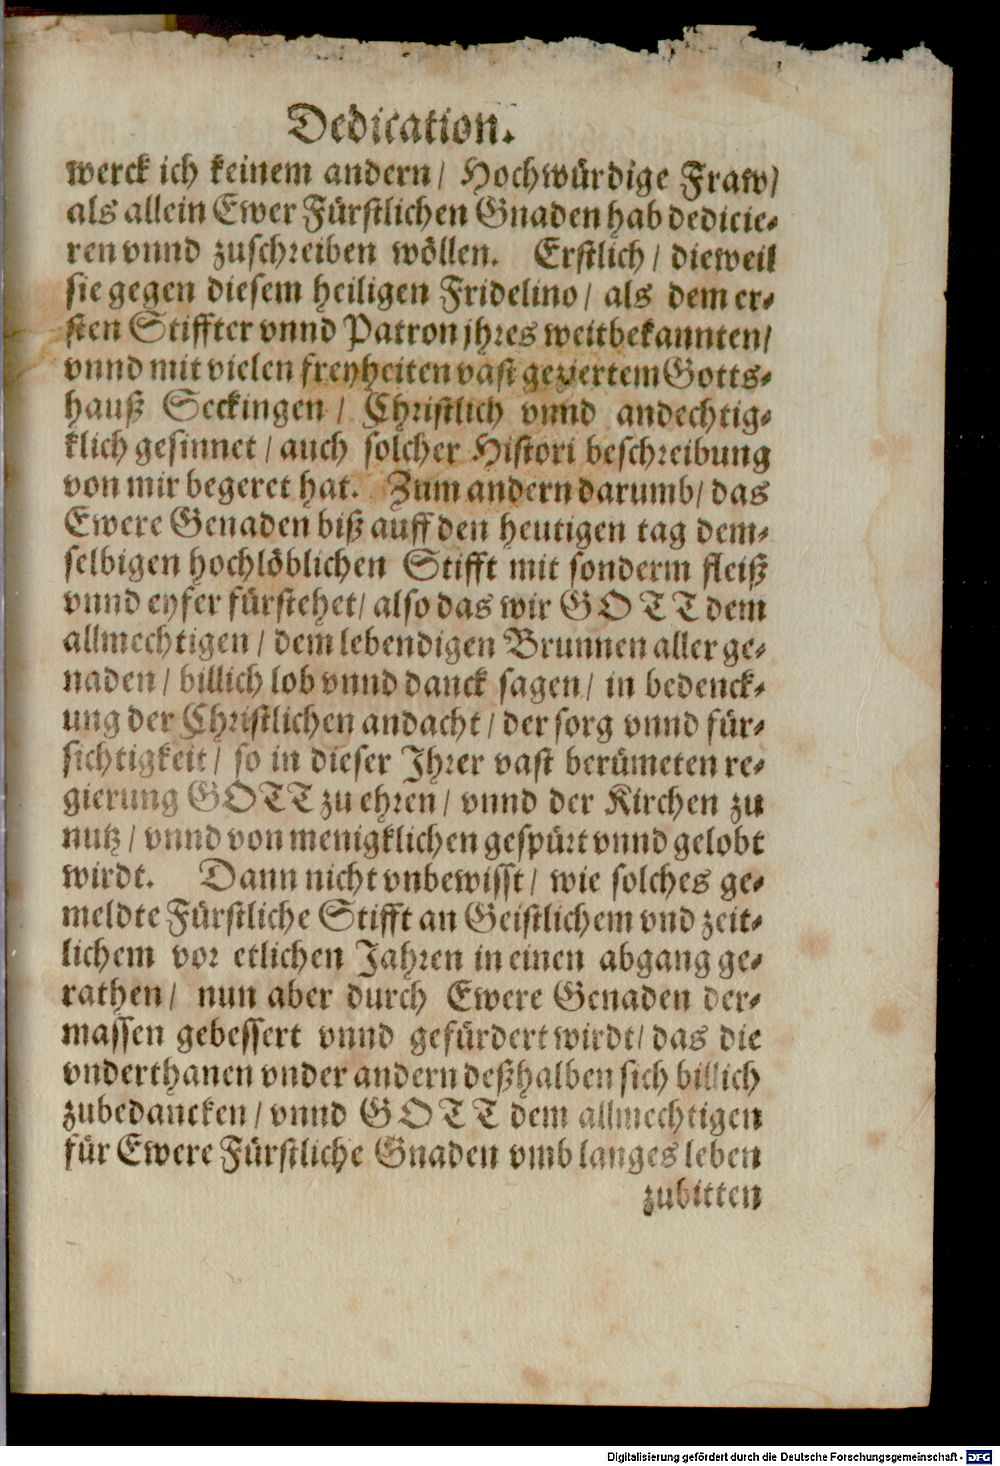 Dedication.
werck ich keinem andern/ Hochwürdige Fraw/
als allein Ewer Fürstlichen Gnaden hab dedicie-
ren vnnd zuschreiben wöllen. Erstlich/ dieweil
sie gegen diesem heiligen Fridelino/ als dem er-
sten Stiffter vnnd Patron jhres weitbekannten/
vnnd mit vielen freyheiten vast geziertem Gotts-
hauß Seckingen/ Christlich vnnd andechtig-
klich gesinnet/ auch solcher Histori beschreibung
von mir begeret hat. Zum andern darumb/ das
Ewere Genaden biß auff den heutigen tag dem-
selbigen hochlöblichen Stifft mit sonderm fleiß
vnnd eyfer fürstehet/ also das wir GOTT dem
allmechtigen/ dem lebendigen Brunnen aller ge-
naden/ billich lob vnnd danck sagen/ in bedenck-
ung der Christlichen andacht/ der sorg vnnd für-
sichtigkeit/ so in dieser Ihrer vast berümeten re-
gierung GOTT zu ehren/ vnnd der Kirchen zu
nutz/ vnnd von menigklichen gespürt vnnd gelobt
wirdt. Dann nicht vnbewisst/ wie solches ge-
meldte Fürstliche Stifft an Geistlichem vnd zeit-
lichem vor etlichen Jahren in einen abgang ge-
rathen/ nun aber durch Ewere Genaden der-
massen gebessert vnnd gefürdert wirdt/ das die
vnderthanen vnder andern deßhalben sich billich
zubedancken/ vnnd GOTT dem allmechtigen
für Ewere Fürstliche Gnaden vmb langes leben
zubitten
Digitalisierung gefördert durch die Deutsche Forschungsgemeinschaft - DFG